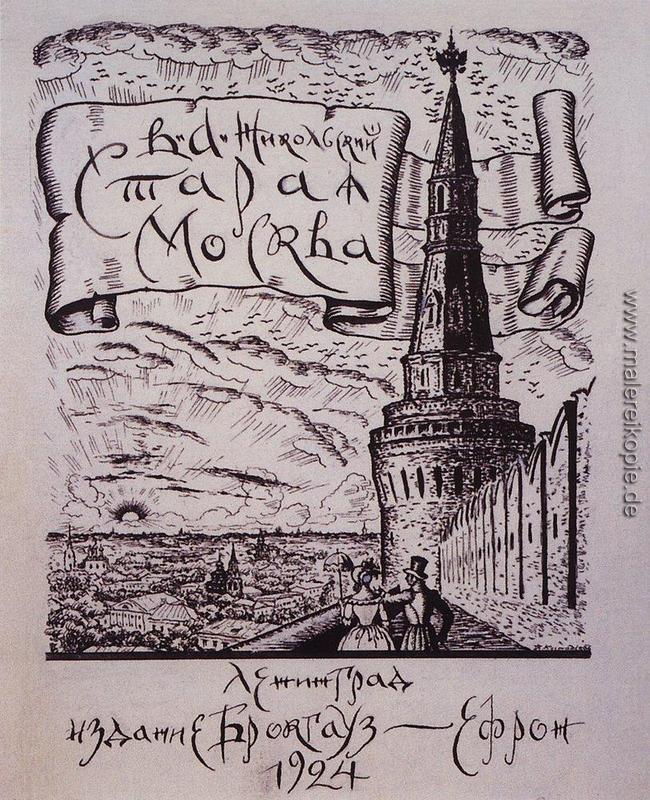 В. А. Никольский
Старая
Москва
Ленинград
издание Брокгауз — Ефрон
1924
www.malereikopie.de